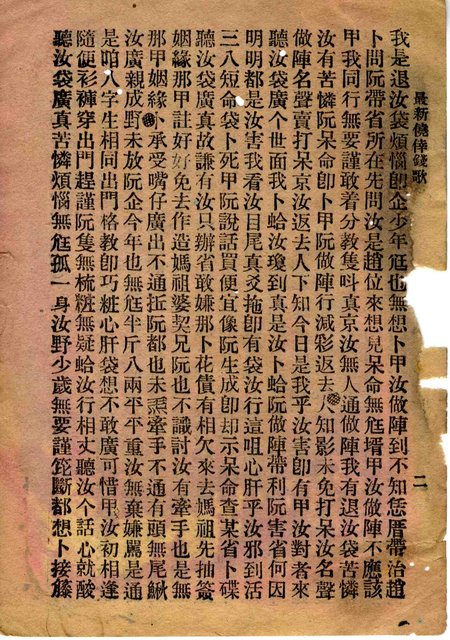 最新僥倖錢歌
我是退汝袋煩惱即企少年尫也無想卜甲汝做陣到不知恁厝帶治趙
卜問阮帶省所在先問汝是趙位來想兒呆命無尫壻甲汝做陣不應該
甲我同行無要謹敢着分教隻呌真京汝無人通做陣我有退汝袋苦憐
汝有苦憐阮呆命卽卜甲阮做陣行減彩返去人知影未免打呆汝名聲
做陣名聲賣打呆京汝返去人下知今日是我乎汝害卽有甲汝對者來
聽汝袋廣个世面我卜蛤汝瓊到真是汝卜蛤阮做陣帶利阮害省何因
明明都是汝害我看汝目尾真爻拖卽有袋汝行這咀心肝乎汝邪到活
三八短命袋卜死甲阮說話買便宜像阮生成卽却示呆命查某省卜碟
聽汝袋廣真故謙有汝只辦省敢嫌那卜花債有相欠來去媽祖先抽簽
姻緣那甲註好好免去作造媽祖婆契兄阮也不識討汝有牽手也是無
那甲姻緣小承受嘴仔廣出不通抂阮都也未𤆬牽手不通有頭無尾鰍
汝廣親成野未放阮企今年也無尫半斤八兩平平重汝無棄嫌罵是通
是咱八字生相同出門格教卽巧粧心肝袋想不敢廣可惜甲汝初相逢
隨便衫褲穿出門趕謹阮隻無梳粧無疑蛤汝行相丈聽汝个話心就酸
聽汝袋廣真苦憐煩惱無尫孤一身汝野少歲無要謹䇄斷都想卜接藤
二